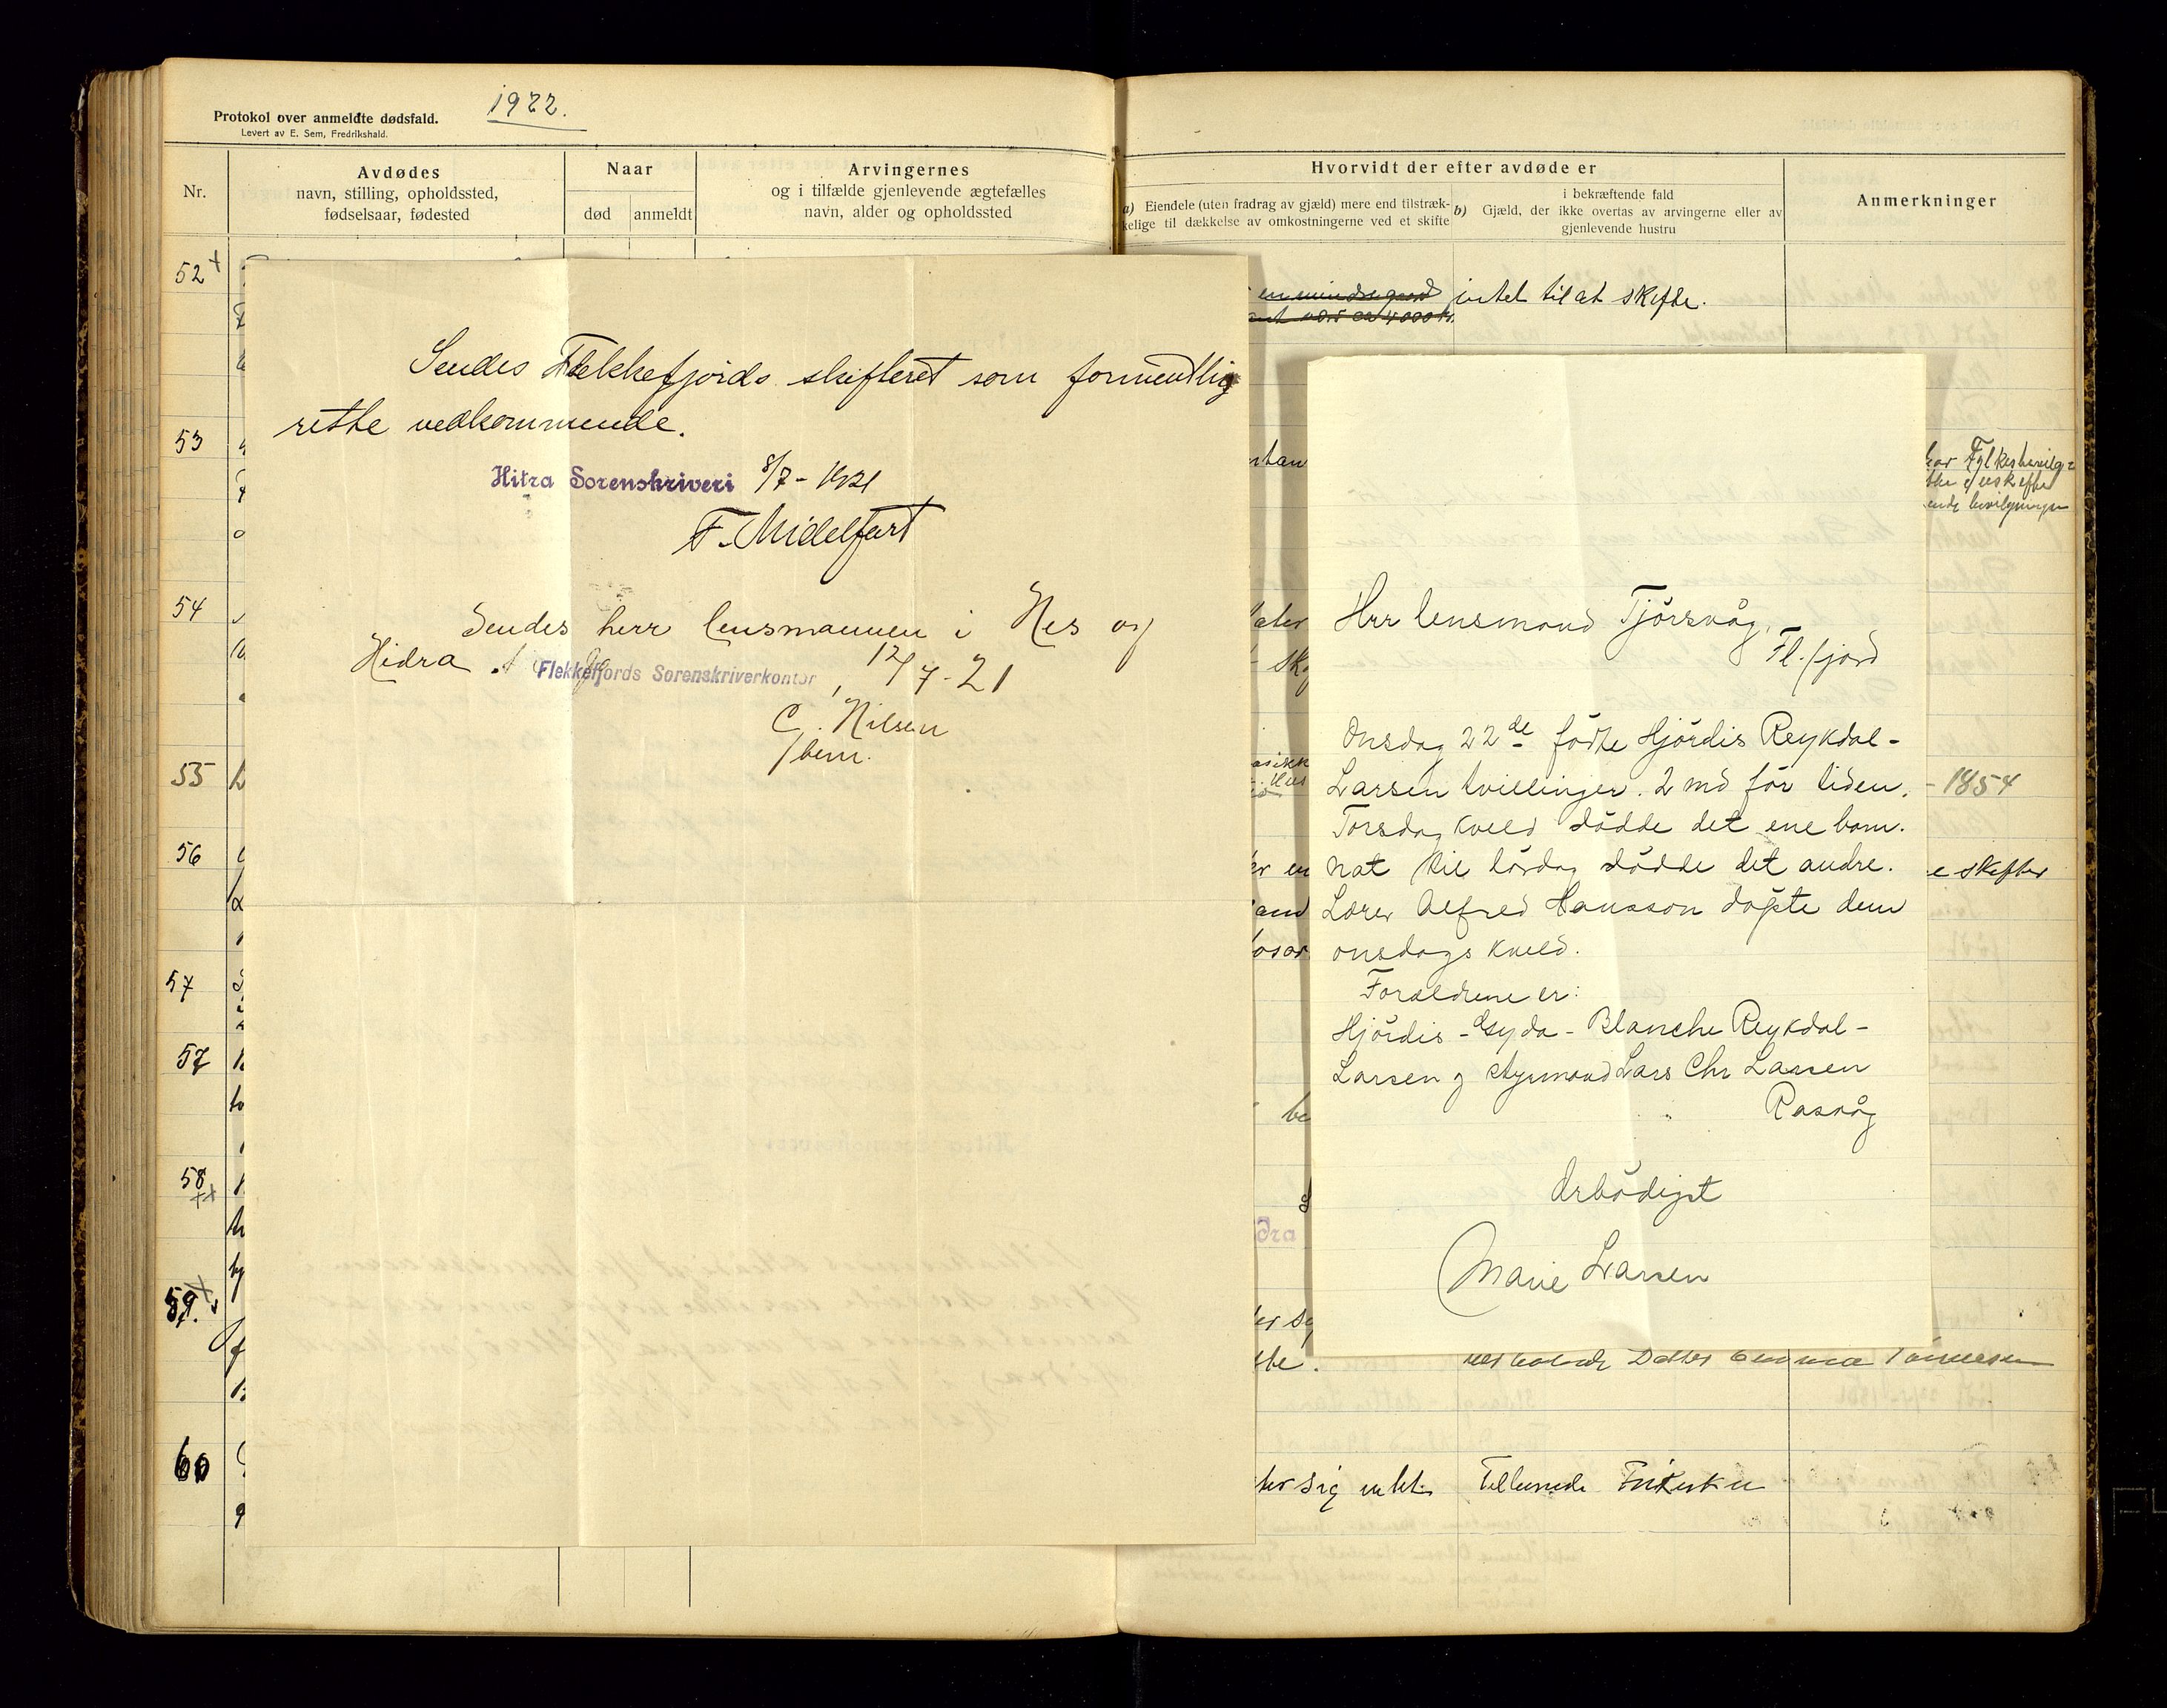 Protokol over anmeldte dødsfald.
Levert av E. Sem, Fredrikshald.
1922.
Nr.
Avdødes
navn, stilling, opholdssted,
fødselsaar, fødested
Naar
død
anmeldt
Arvingernes
og i tilfælde gjenlevende ægtefælles
navn, alder og opholdssted
Hvorvidt der efter avdøde er
a) Eiendele (uten fradrag av gjæld) mere end tilstræk-
kelige til dækkelse av omkostningerne ved et skifte
i bekræftende fald
b) Gjæld, der ikke overtas av arvingerne eller av
gjenlevende hustru
Anmerkninger
52
53
54
55
56
57
57
58
59.
60
Sendes Flekkefjords skifteret som formentlig
rette vedkommende.
Hitra Sorenskriveri 8/7-1921
F. Midelfart
Sendes herr lensmannen i Nes og
Hidra.
Flekkefjords Sorenskriverkontor, 12/7-21
C. Nilsen
/bem.
intet til at skifte.
Hrr lensmand Tjörsvåg,
Fl.fjord
Onsdag 22de födte Hjördis Reykdal-
Larsen tvillinger. 2 md för tiden.
Torsdag kveld dödde det ene barn.
Nat til lördag dödde det andre.
Lærer Alfred Hansson döpte dem
onsdags kveld.
Forældrene er:
Hjördis-Gyda-Blanche Reykdal-
Larsen og styrmand Lars Chr Larsen
Rasvåg
Ærbödigst
Marie Larsen
har Fylkesbevilg=
- 1854
e skifter
dra
ter sig intet.